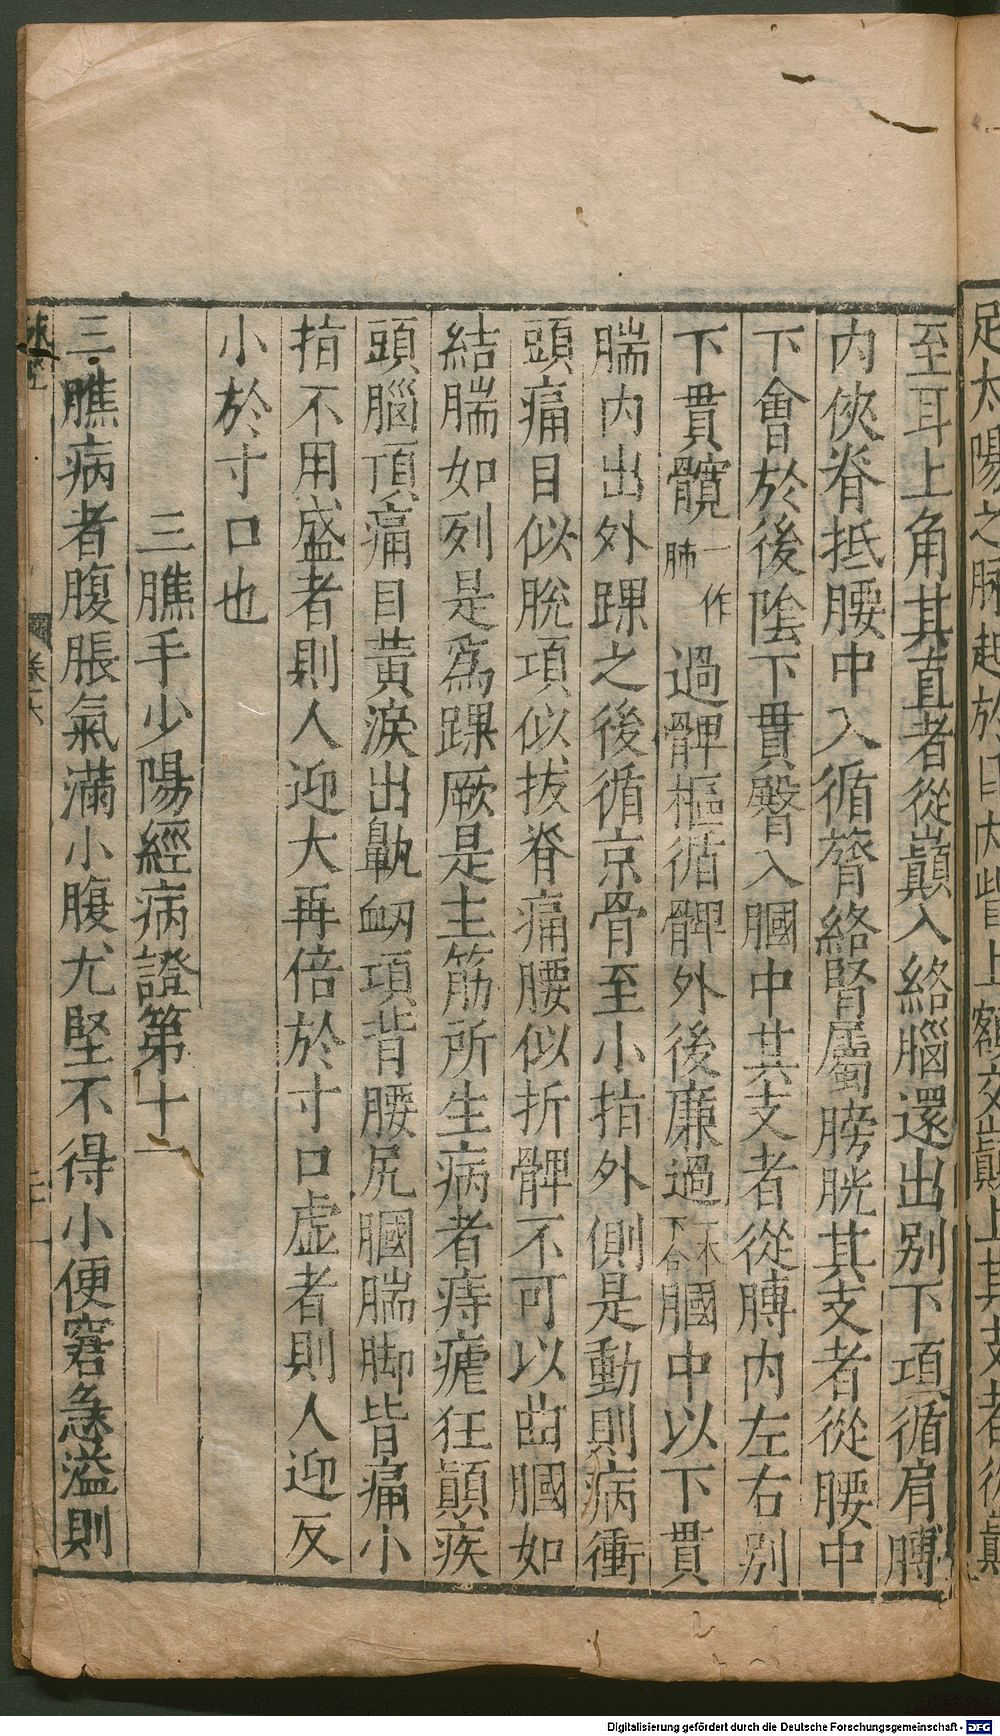 足太陽之脉起於目內眥上額交巔上其支者從巔
至耳上角其直者從巔入絡腦還出别下項循肩膊
內俠脊抵腰中入循膂絡腎屬膀胱其支者從腰中
下會於後陰下貫臀入膕中其支者從膊內左右别
下貫髖一作肺過髀樞循髀外後廉過一本下合膕中以下貫
腨內出外踝之後循京骨至小指外側是動則病衝
頭痛目似脫項似拔脊痛腰似折髀不可以曲膕如
結腨如列是爲踝厥是主筋所生病者痔瘧狂顛疾
頭腦頂痛目黃淚出鼽衂項背腰尻膕腨脚皆痛小
指不用盛者則人迎大再倍於寸口虛者則人迎反
小於寸口也
三膲手少陽經病證第十一
三膲病者腹脹氣滿小腹尤堅不得小便窘急溢則
脉經
卷六
Digitalisierung gefördert durch die Deutsche Forschungsgemeinschaft - DFG